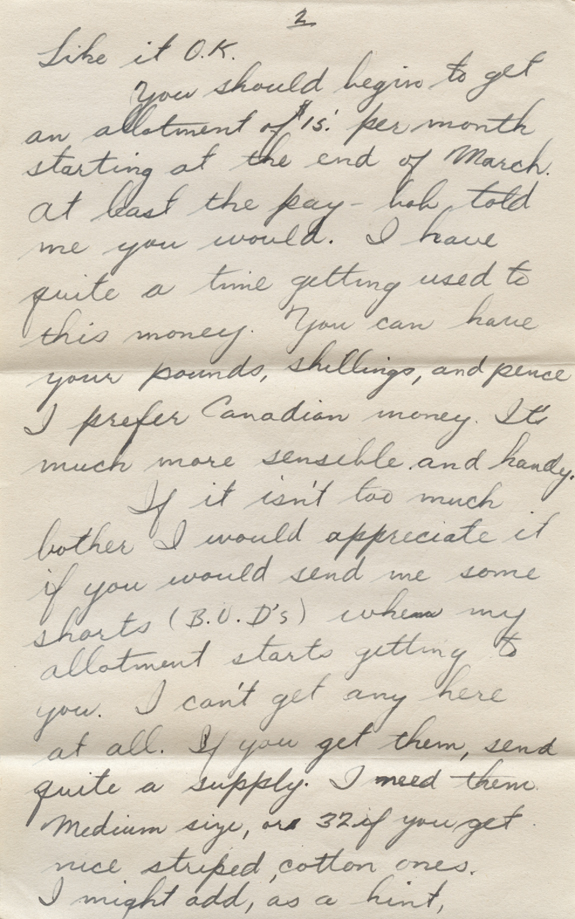 2
Like it O.K.
You should begin to get
an allotment of $15. per month
starting at the end of March.
At least the pay- bob told
me you would. I have
quite a time getting used to
this money. You can have
your pounds, shillings, and pence
I prefer Canadian money. It's
much more sensible and handy.
If it isn't too much
bother I would appreciate it
if you would send me some
shorts (B.V.D's) when my
allotment starts getting to
you. I can't get any here
at all. If you get them, send
quite a supply. I need them
Medium size, or 32 if you get
nice striped, cotton ones.
I might add, as a hint,